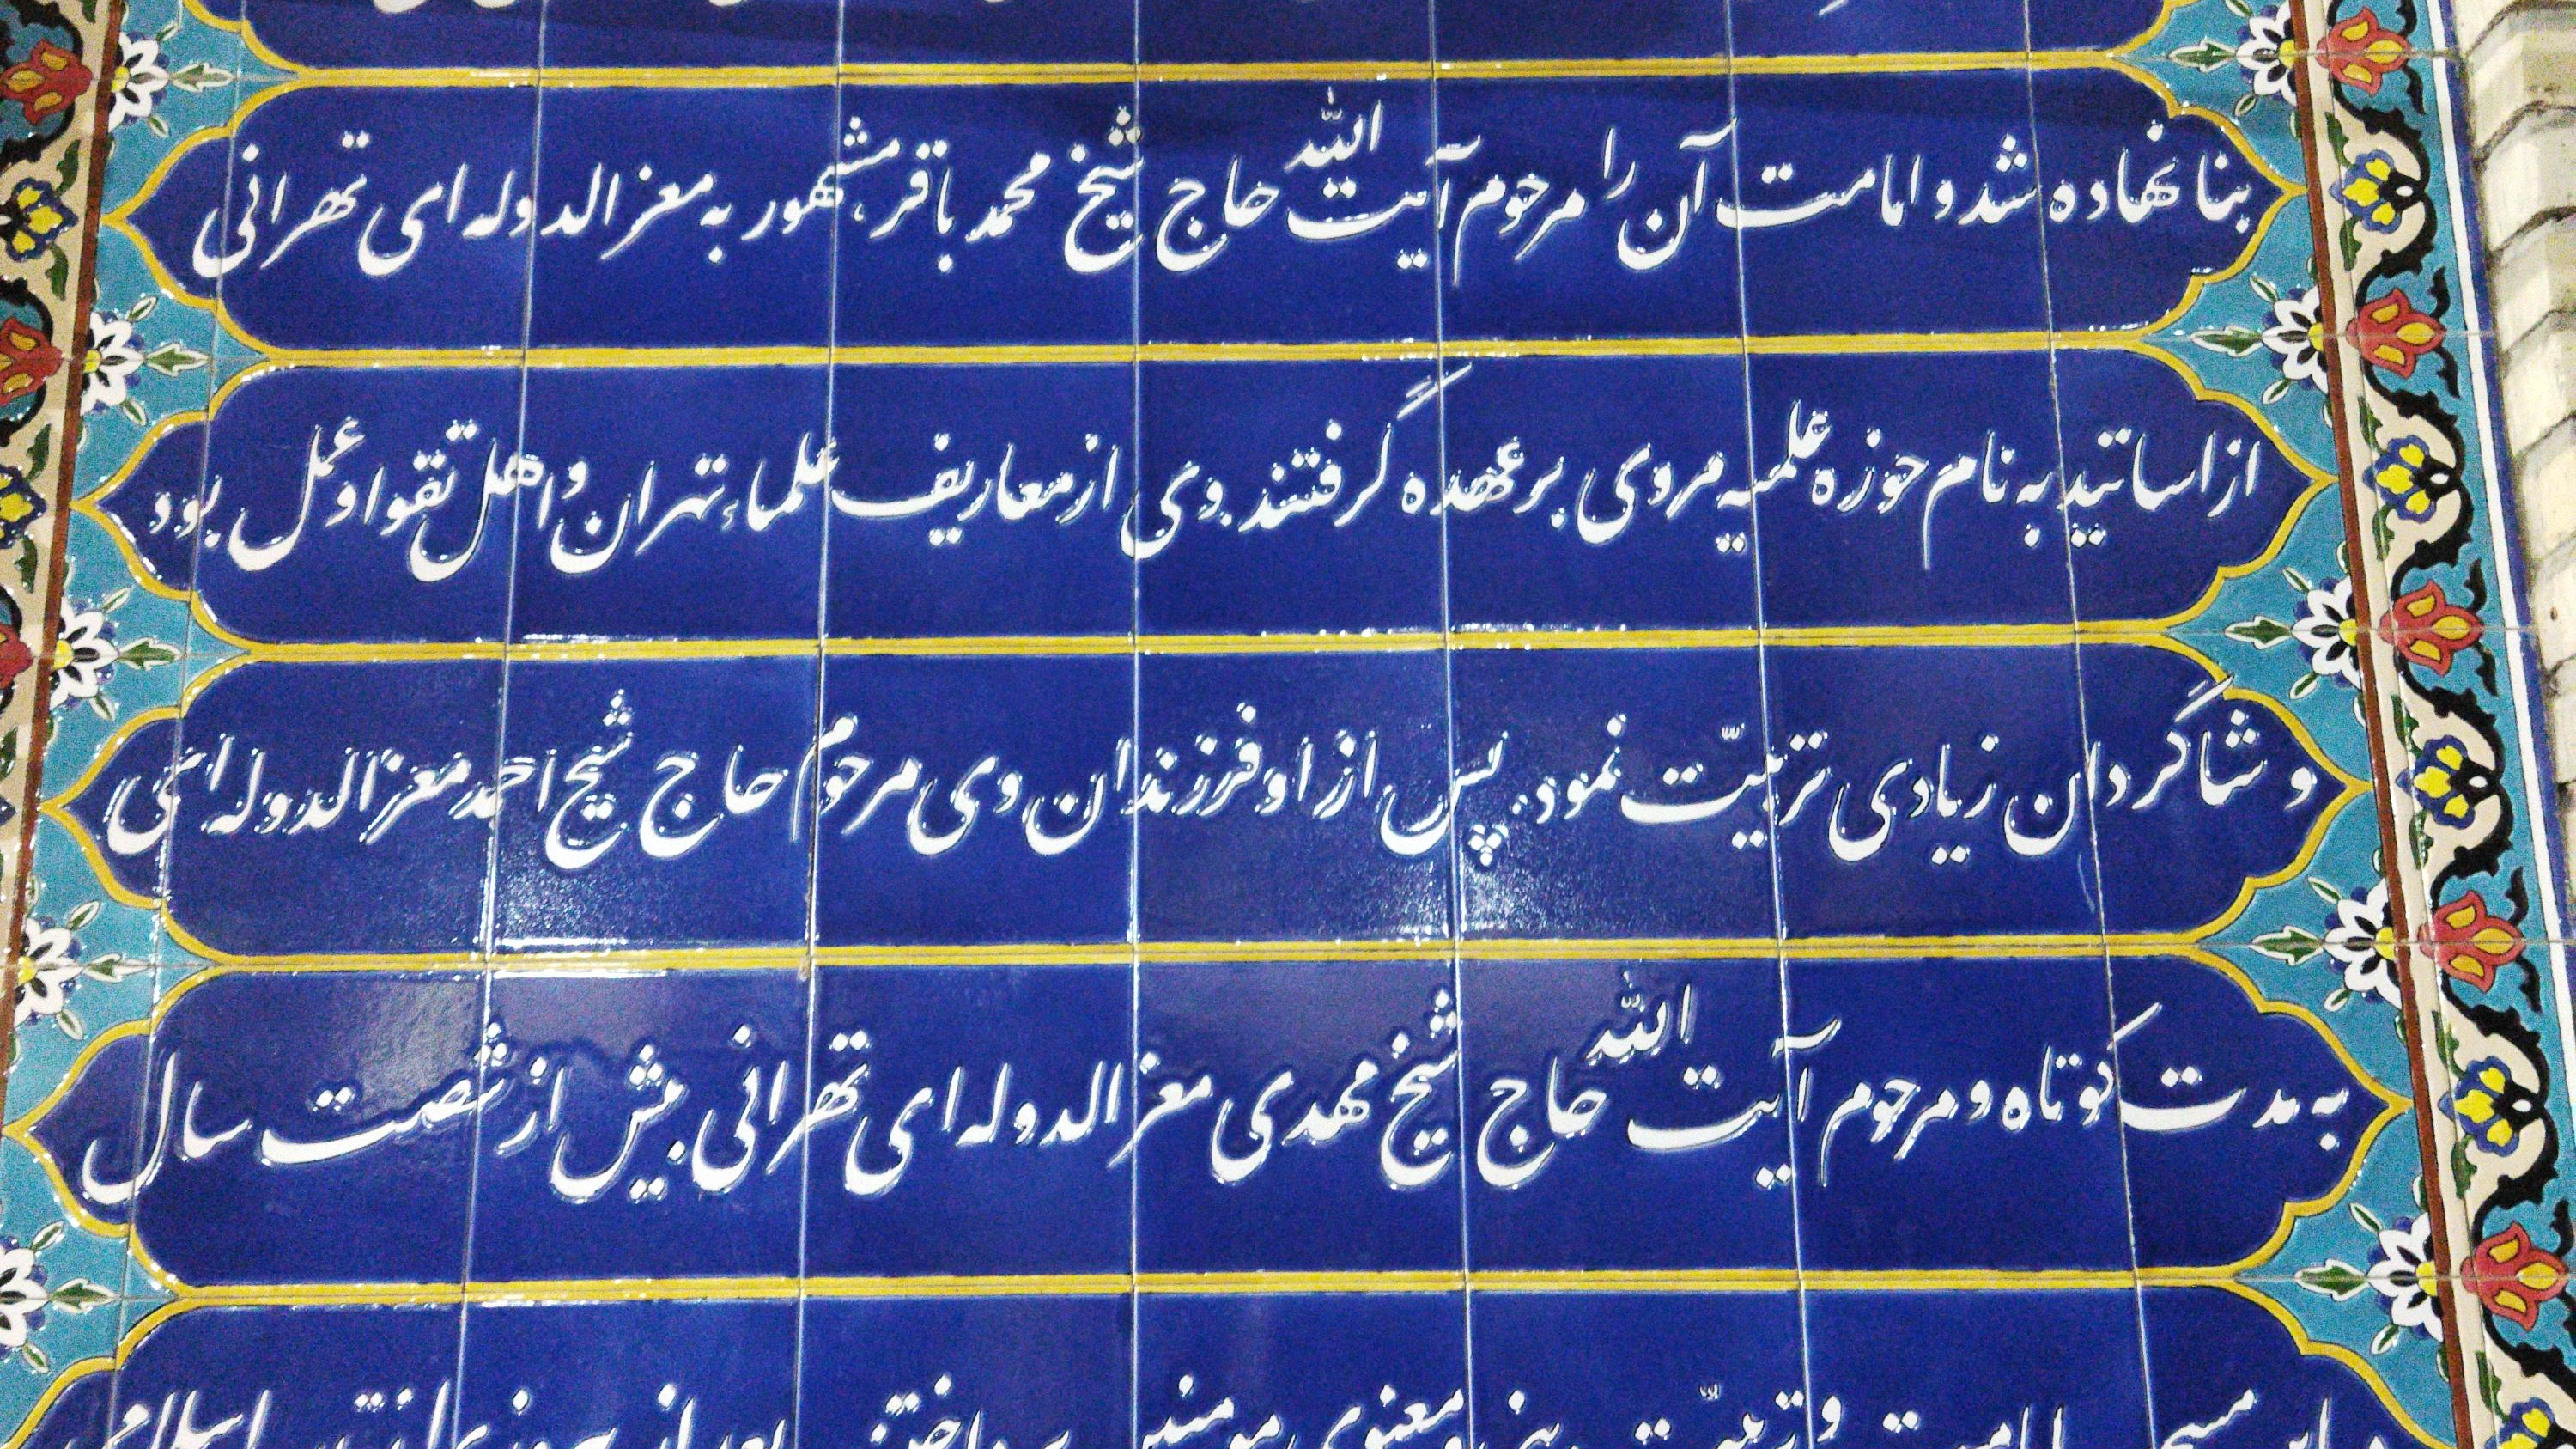 بنا نهاده شد و امامت آن را مرحوم آیت الله حاج شیخ محمد باقر، مشهور به معزالدوله ای تهرانی
از اساتید به نام حوزه علمیه مروی بر عهده گرفتند. وی از معاریف علماء تهران و اهل تقوا و عمل بود
و شاگردان زیادی تربیّت نمود. پس از او فرزندان وی مرحوم حاج شیخ احمد معزالدوله ای
به مدت کوتاه و مرحوم آیت الله حاج شیخ مهدی معزالدوله ای تهرانی بیش از شصت سال